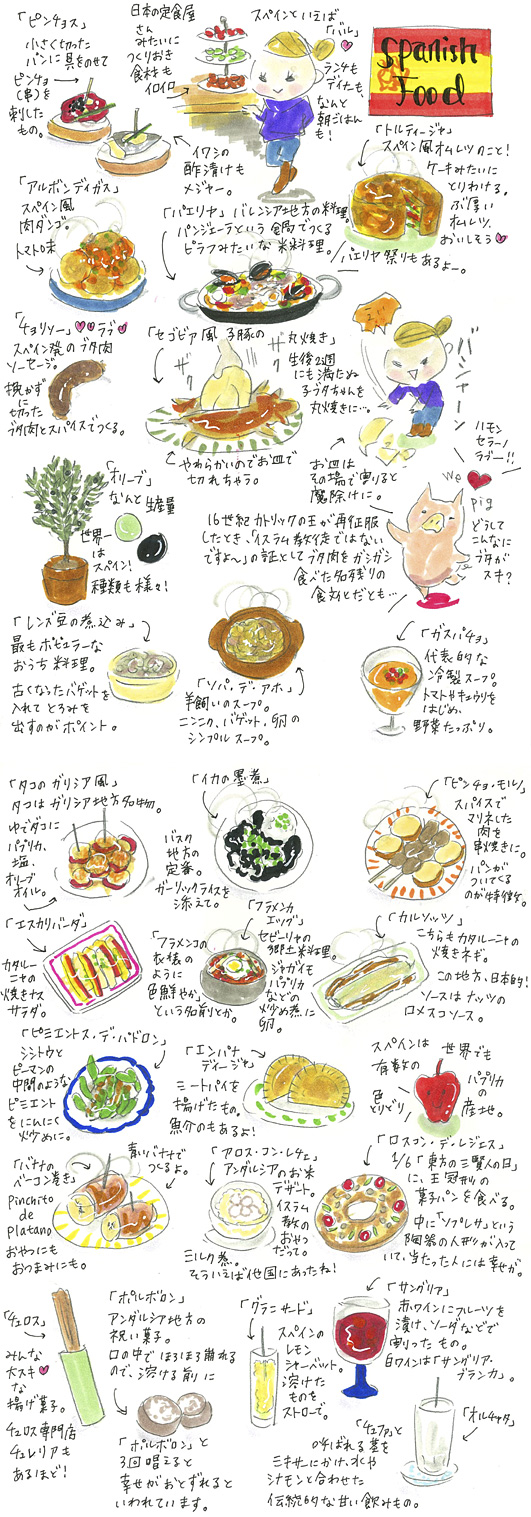 Spanish
Food
「ピンチョス」
小さく切った
パンに具をのせて
ピンチョ
(串)を
刺した
もの。
日本の定食屋
さん
みたいに
つくりおき
食材も
イロイロ
スペインといえば
「バル」
ランチも
ディナーも、
なんと
朝ごはん
も!
イワシの
酢漬けも
メジャー。
「トルティージャ」
スペイン風オムレツのこと!
ケーキみたいに
とりわける。
ぶ厚い
オムレツ、
おいしそう
「アルボンディガス」
スペイン風
肉ダンゴ。
トマト味
「パエリヤ」バレンシア地方の料理
パンジェーラという食局でつくる
ピラフみたいな米料理。
パエリヤ祭りもあるよー。
「チョリソー」ラブ
スペイン発のブタ肉
ソーセージ。
挽かずに
切った
ブタ肉とスパイスでつくる。
「セゴビア風 子豚の
丸焼き」
生後2週
にも満たぬ
子ブタちゃんを
丸焼きに…。
ザク
ザク
やわらかいのでお皿で
切れちゃう。
お皿は
その場で割ると
魔除けに。
バシャーン
ハモン
セラーノ
ラブー!!
we
pig
どうして
こんなに
ブタが
スキ?
16世紀カトリックの王が再征服
したとき、「イスラム教徒ではない
ですよ〜」の証としてブタ肉をガシガシ
食べた名残りの
食文化とだとも…
「オリーブ」
なんと生産量
世界一
は
スペイン!
種類も様々!
「レンズ豆の煮込み」
最もポピュラーな
おうち料理。
古くなったバゲットを
入れてとろみを
出すのがポイント。
「ソパ・デ・アホ」
羊飼いのスープ。
ニンニク、バゲット、卵の
シンプルスープ。
「ガスパチョ」
代表的な
冷製スープ。
トマトやキュウリを
はじめ、
野菜たっぷり。
「タコのガリシア風」
タコはガリシア地方名物。
ゆでダコに
パプリカ、
塩、
オリーブ
オイル。
「イカの墨煮」
バスク
地方の
定番。
ガーリックライスを
添えて。
「ピンチョ・モル」
スパイスで
マリネした
肉を
串焼きに。
パンが
ついてくる
のが特徴。
「エスカリバーダ」
カタルー
ニャの
焼きナス
サラダ。
「フラメンカ
エッグ」
セビーリャの
郷土料理。
ジャガイモ
パプリカ
などの
炒め煮に
卵。
「フラメンコの
衣装の
ように
色鮮やか」
という名前とか。
「カルソッツ」
こちらもカタルーニャの
焼きネギ。
この地方、日本的!
ソースはナッツの
ロメスコソース。
「ピミエントス・デ・パドロン」
シシトウと
ピーマンの
中間のような
ピミエント
をにんにく
炒めに。
「エンパナ
ディージャ」
ミートパイを
揚げたもの。
魚介のもあるよ!
スペインは世界でも
有数の
パプリカ
の産地。
色
とりどり
「バナナの
ベーコン巻き」
Pinchito
de
platano
おやつにも
おつまみにも。
青いバナナで
つくるよ。
「アロス・コン・レチェ」
アンダルシアのお米
デザート。
イスラム
教の
おやつ
だって。
ミルク煮。
そういえば他国にあったね!
「ロスコン・デ・レジェス」
1/6「東方の三賢人の日」
に、王冠形の
菓子パンを食べる。
中に「ソプレサ」という
陶器の人形が入って
いて、当たった人には幸せが。
「チュロス」
みんな
大スキ
な
揚げ菓子。
チュロス専門店
チュレリアも
あるほど!
「ポルボロン」
アンダルシア地方の
祝い菓子。
口の中でほろほろ崩れる
ので、溶ける前に
「ポルボロン」と
3回唱えると
幸せがおとずれると
いわれています。
「グラニサード」
スペインの
レモン
シャーベット。
溶けた
ものを
ストローで。
「サングリア」
赤ワインにフルーツを
漬け、ソーダなどで
割ったもの。
白ワインは「サングリア・
ブランカ」。
「オルチャタ」
「チュファ」と
呼ばれる茎を
ミキサーにかけ、水や
シナモンと合わせた
伝統的な甘い飲みもの。